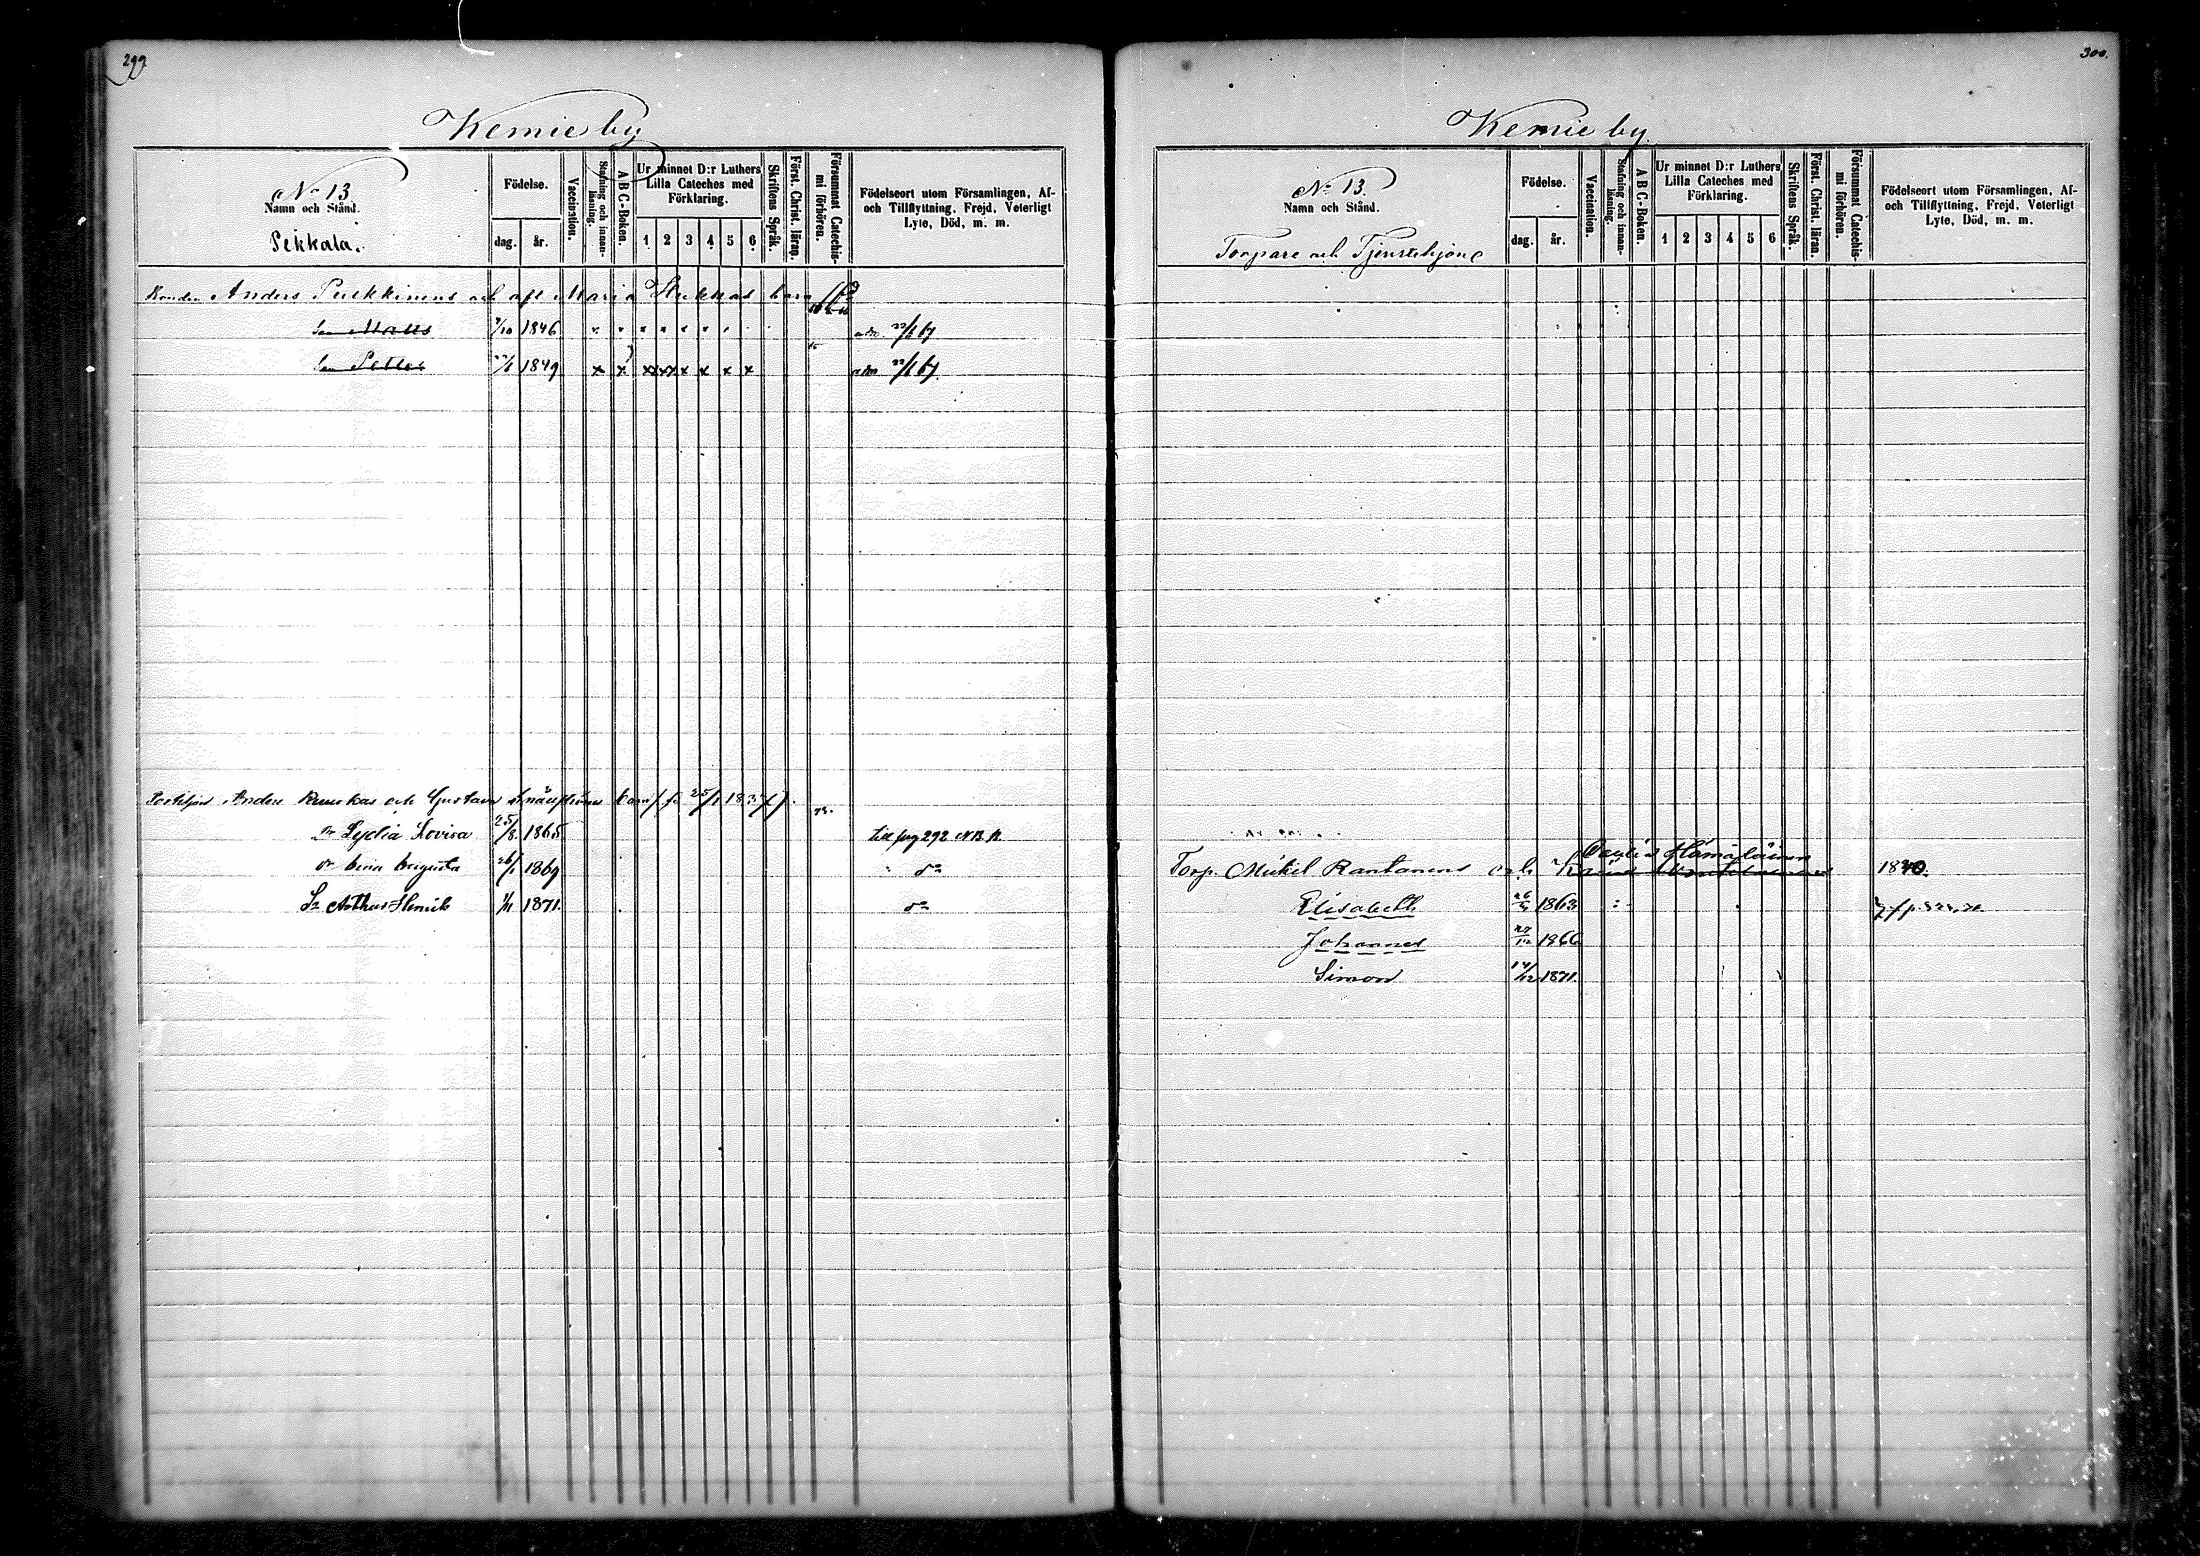 299
Kemie by
No 13
Namn och Stånd.
Pekkala.
Födelse.
dag. år.
Vaccination.
Stafning och innan-läsning.
A B C-Boken.
Ur minnet D:r Luthers Lilla Cateches med Förklaring.
1 2 3 4 5 6
Skriftens Språk.
Först. Christ. läran.
Försummat Catechismi förhören.
Födelseort utom Församlingen, Af- och Tillflyttning, Frejd, Veterligt Lyte, Död, m. m.
Bonden Anders Pulkkinens och afl Maria Hukkas barn
Son Matts 1846 adm 22/1 67
Son Petter 1849 x x x x x x x x x adm 22/1 67
Anders och Gustava barn
Dr Lydia Lovisa 25/8 1865 till pag 292 N.B.
Dr Augusta 26/1 1869 do
Sn Arthur Henrik 1/11 1871 do
300.
Kemie by
No 13.
Namn och Stånd.
Torpare och Tjenstehjon
Födelse.
dag. år.
Vaccination.
Stafning och innan-läsning.
A B C-Boken.
Ur minnet D:r Luthers Lilla Cateches med Förklaring.
1 2 3 4 5 6
Skriftens Språk.
Först. Christ. läran.
Försummat Catechismi förhören.
Födelseort utom Församlingen, Af- och Tillflyttning, Frejd, Veterligt Lyte, Död, m. m.
Hämäläinen
Torp. Mickel Rantanens och 1840.
Elisabeth 1863
Johannes 1866
Simon 14/12 1871.